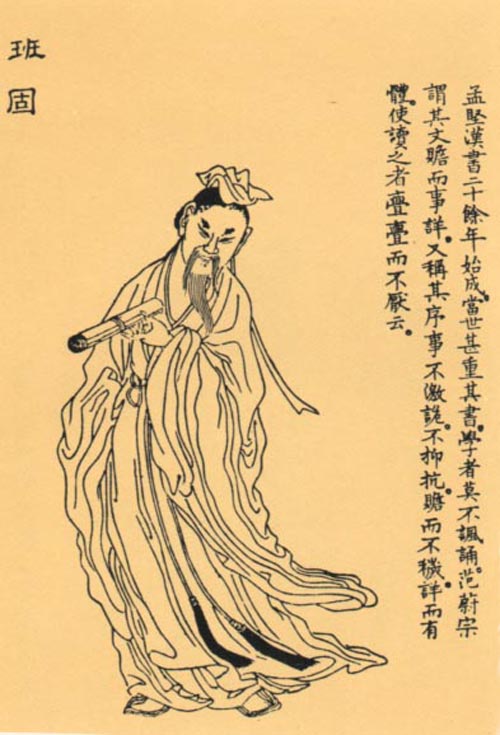 班固
孟堅漢書二十餘年始成。當世甚重其書。學者莫不諷誦。范蔚宗
謂其文贍而事詳。又稱其序事不激詭。不抑抗。贍而不穢。詳而有
體。使讀之者亹亹而不厭云。